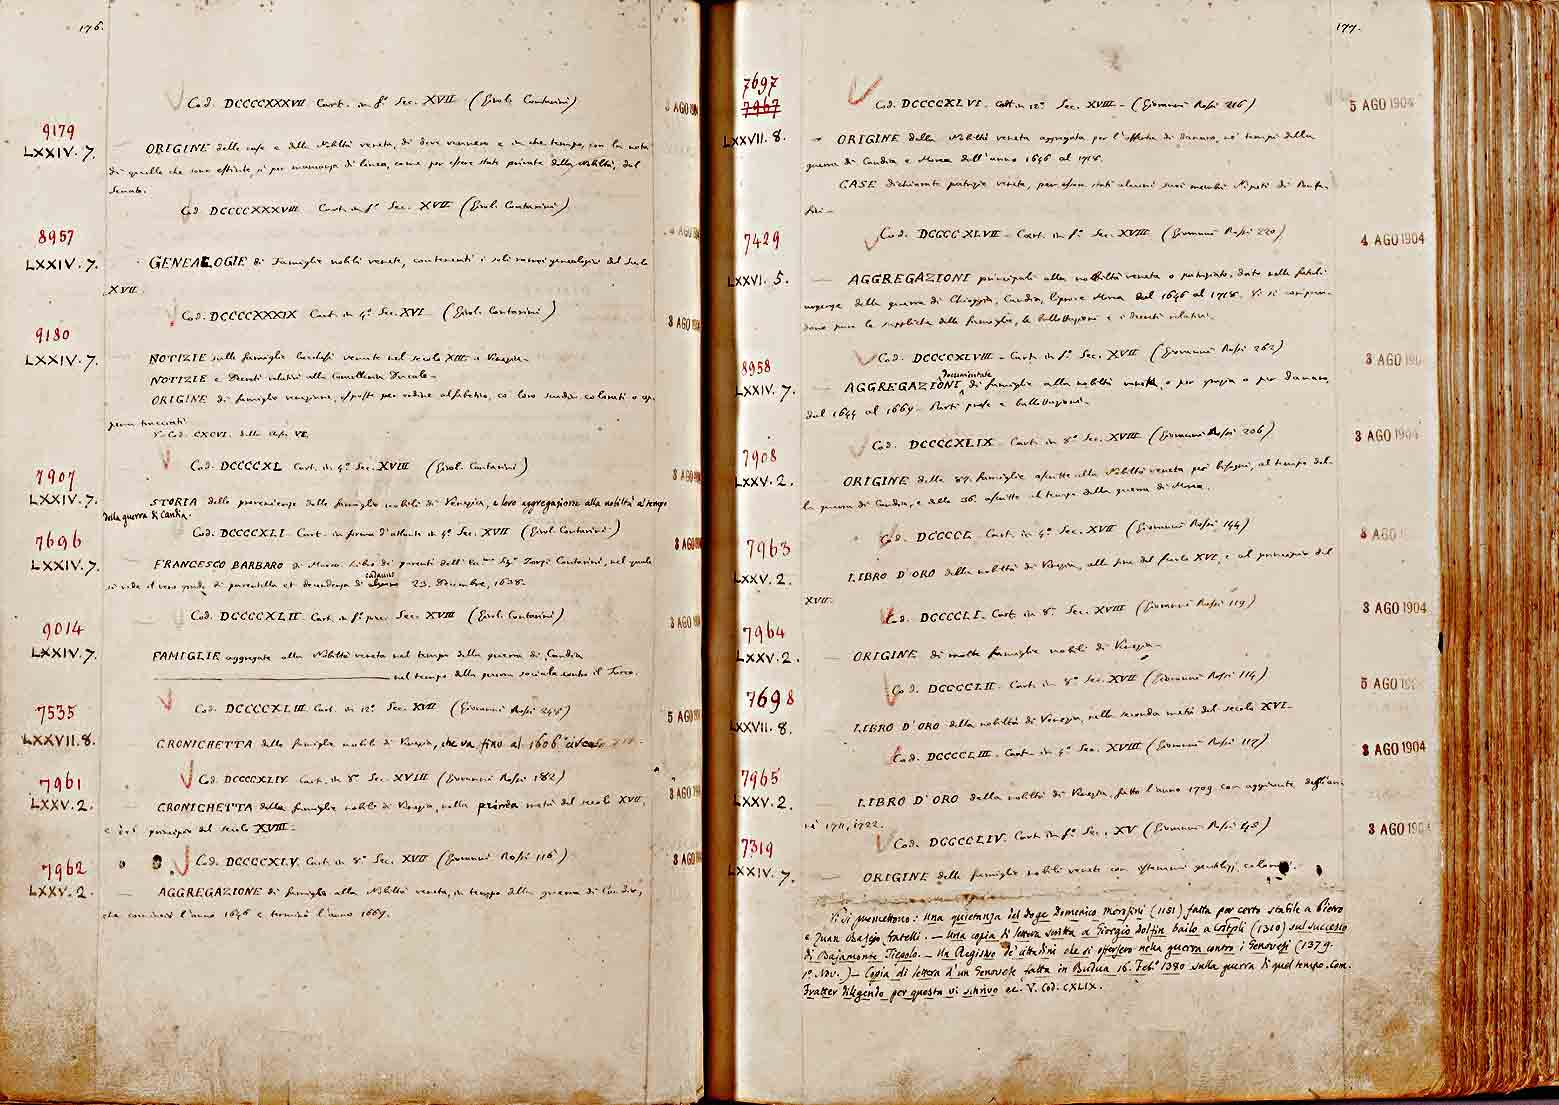 176.
Cod. DCCCCXXXVII Cart. in fº Sec. XVII (Girol. Contarini)
3 AGO
9179
LXXIV. 7.
ORIGINE delle case e della Nobiltà veneta, di dove vennero e in che tempo, con la nota
di quelle che sono estinte, sì per mancanza di linea, come per essere state private della Nobiltà, dal
Senato.
Cod DCCCCXXXVIII Cart. in fº Sec. XVII (Girol. Contarini)
8957
LXXIV. 7.
GENEALOGIE di Famiglie nobili venete, contenenti i soli
XVII.
Cod. DCCCCXXXIX Cart. in 4º Sec. XVI (Girol. Contarini)
3 AGO
9180
LXXIV. 7.
NOTIZIE sulle famiglie Lucchesi venute nel secolo XIII a Venezia.
NOTIZIE e Decreti relativi alla Cancelleria Ducale.
ORIGINE di famiglie veneziane, disposte per ordine alfabetico, co' loro scudi colorati o ap-
pena tracciati
V. Cod. CXCVI. della Cl. VI.
Cod. DCCCCXL Cart. in 4º Sec. XVIII (Girol. Contarini)
3 AGO
7907
LXXIV. 7.
STORIA della provenienza delle famiglie nobili di Venezia, e loro aggregazione alla nobiltà al tempo
della guerra di Candia.
Cod. DCCCCXLI Cart. in forma d'atlante in 4º Sec. XVII (Girol. Contarini)
3 AGO
7696
LXXIV. 7.
FRANCESCO BARBARO di Marco. Libro de' parenti dell' Sigr Zorzi Contarini, nel quale
si vede il vero grado di parentella et 23. Decembre, 1638.
Cod. DCCCCXLII Cart. in fº Sec. XVIII (Girol. Contarini)
3 AGO
9014
LXXIV. 7.
FAMIGLIE aggregate alla Nobiltà veneta nel tempo della guerra di Candia
nel tempo della guerra sociale contro il Turco.
Cod. DCCCCXLIII Cart. in 12º Sec. XVII (Giovanni Rossi 248)
5 AGO
7535
LXXVII. 8.
CRONICHETTA delle famiglie nobili di Venezia, che va fino al 1606 circa
Cod. DCCCCXLIV Cart. in 8º Sec. XVIII (Giovanni Rossi 182)
3 AGO
7961
LXXV. 2.
CRONICHETTA delle famiglie nobili di Venezia, nella prima metà del secolo XVII,
e nel principio del secolo XVIII.
Cod. DCCCCXLV. Cart. in 8º Sec. XVII (Giovanni Rossi 116)
3 AGO
7962
LXXV. 2.
AGGREGAZIONE di famiglie alla Nobiltà veneta, in tempo della guerra di Candia,
che cominciò l'anno 1646 e terminò l'anno 1669.
177.
7697
7967
Cod. DCCCCXLVI. Cart. in 12º Sec. XVIII (Giovanni Rossi 216)
5 AGO 1904
LXXVII. 8.
ORIGINE della Nobiltà veneta aggregata per l'offerta di danaro, ne' tempi della
guerra di Candia e Morea dall'anno 1646 al 1718.
CASE dichiarate patrizie venete, per essere stati alcuni suoi membri Nipoti di Ponte-
fici.
Cod. DCCCCXLVII. Cart. in fº Sec. XVIII (Giovanni Rossi 220)
4 AGO 1904
7429
LXXVI. 5.
AGGREGAZIONI principali alla nobiltà veneta o patriziato, date nelle
urgenze della guerra di Chioggia, Candia, Cipro e Morea dal 1646 al 1718. Vi si compren-
dono pure le suppliche delle famiglie, le ballottazioni e i decreti relativi.
Cod. DCCCCXLVIII. Cart. in fº Sec. XVII (Giovanni Rossi 262)
3 AGO
8958
LXXIV. 7.
AGGREGAZIONI documentate di famiglie alla nobiltà veneta, o per grazia o per danaro,
dal 1644 al 1669. Parti prese e ballottazioni.
Cod. DCCCCXLIX Cart. in 8º Sec. XVIII (Giovanni Rossi 206)
3 AGO 1904
7908
LXXV. 2.
ORIGINE delle 87. famiglie ascritte alla Nobiltà veneta pei bisogni, al tempo del-
la guerra di Candia, e delle 36. ascritte al tempo della guerra di Morea.
Cod. DCCCCL Cart. in 4º Sec. XVII (Giovanni Rossi 144)
3 AGO
7963
LXXV. 2.
LIBRO D'ORO della nobiltà di Venezia, alla fine del secolo XVI, e al principio del
XVII.
Cod. DCCCCLI. Cart. in 8º Sec. XVIII (Giovanni Rossi 119)
3 AGO 1904
7964
LXXV. 2.
ORIGINE di molte famiglie nobili di Venezia.
Cod. DCCCCLII. Cart. in 8º Sec. XVII (Giovanni Rossi 114)
5 AGO
7698
LXXVII. 8.
LIBRO D'ORO della nobiltà di Venezia, nella seconda metà del secolo XVI.
Cod. DCCCCLIII. Cart. in 4º Sec. XVIII (Giovanni Rossi 117)
3 AGO 1904
7965
LXXV. 2.
LIBRO D'ORO della nobiltà di Venezia, fatto l'anno 1709 con aggiunte degli an-
ni 1711, 1722.
Cod. DCCCCLIV. Cart. in fº Sec. XV (Giovanni Rossi 48)
3 AGO 1904
7319
LXXIV. 7.
ORIGINE delle famiglie nobili venete con istemmi gentilizj colorati.
Vi si premettono: Una quietanza del doge Domenico Morosini (1151) fatta per certo stabile a Pietro
e Zuan Basejo fratelli. — Una copia di lettera scritta a Giorgio Dolfin bailo a Costpli (1310) sul successo
di Bajamonte Tiepolo. — Un Registro de' cittadini che si offersero nella guerra contro i Genovesi (1379.
1º Nov.) — Copia di lettera d'un Genovese fatta in Budua 16. Febº 1380 sulla guerra di quel tempo. Com.
Fratter diligendo per questa vi scrivo ec. V. Cod. CXLIX.